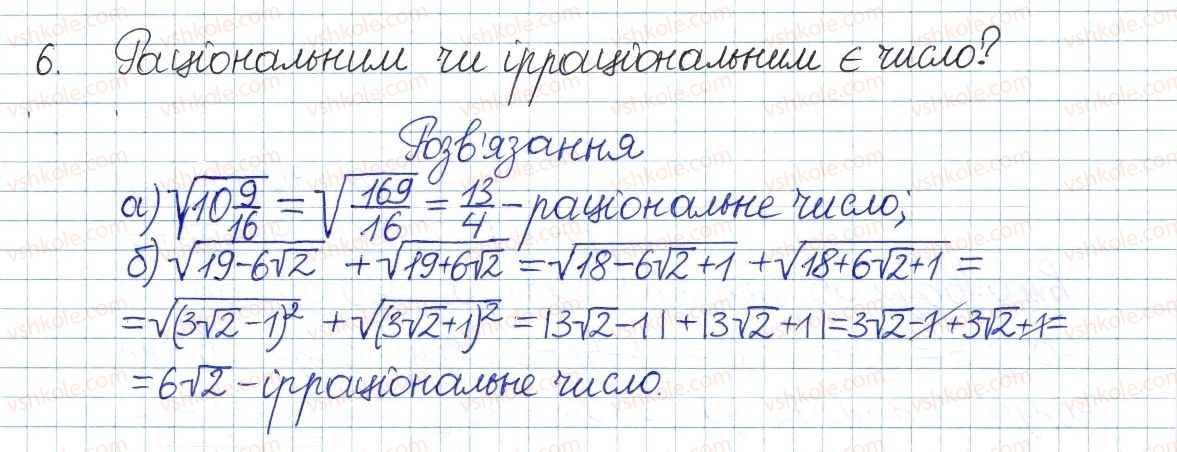 6. Раціональним чи ірраціональним є число?
Розв'язання
а) √(10 9/16) = √(169/16) = 13/4 – раціональне число;
б) √(19-6√2) + √(19+6√2) = √(18-6√2+1) + √(18+6√2+1) =
= √((3√2-1)²) + √((3√2+1)²) = |3√2-1| + |3√2+1| = 3√2-1+3√2+1=
= 6√2 – ірраціональне число.